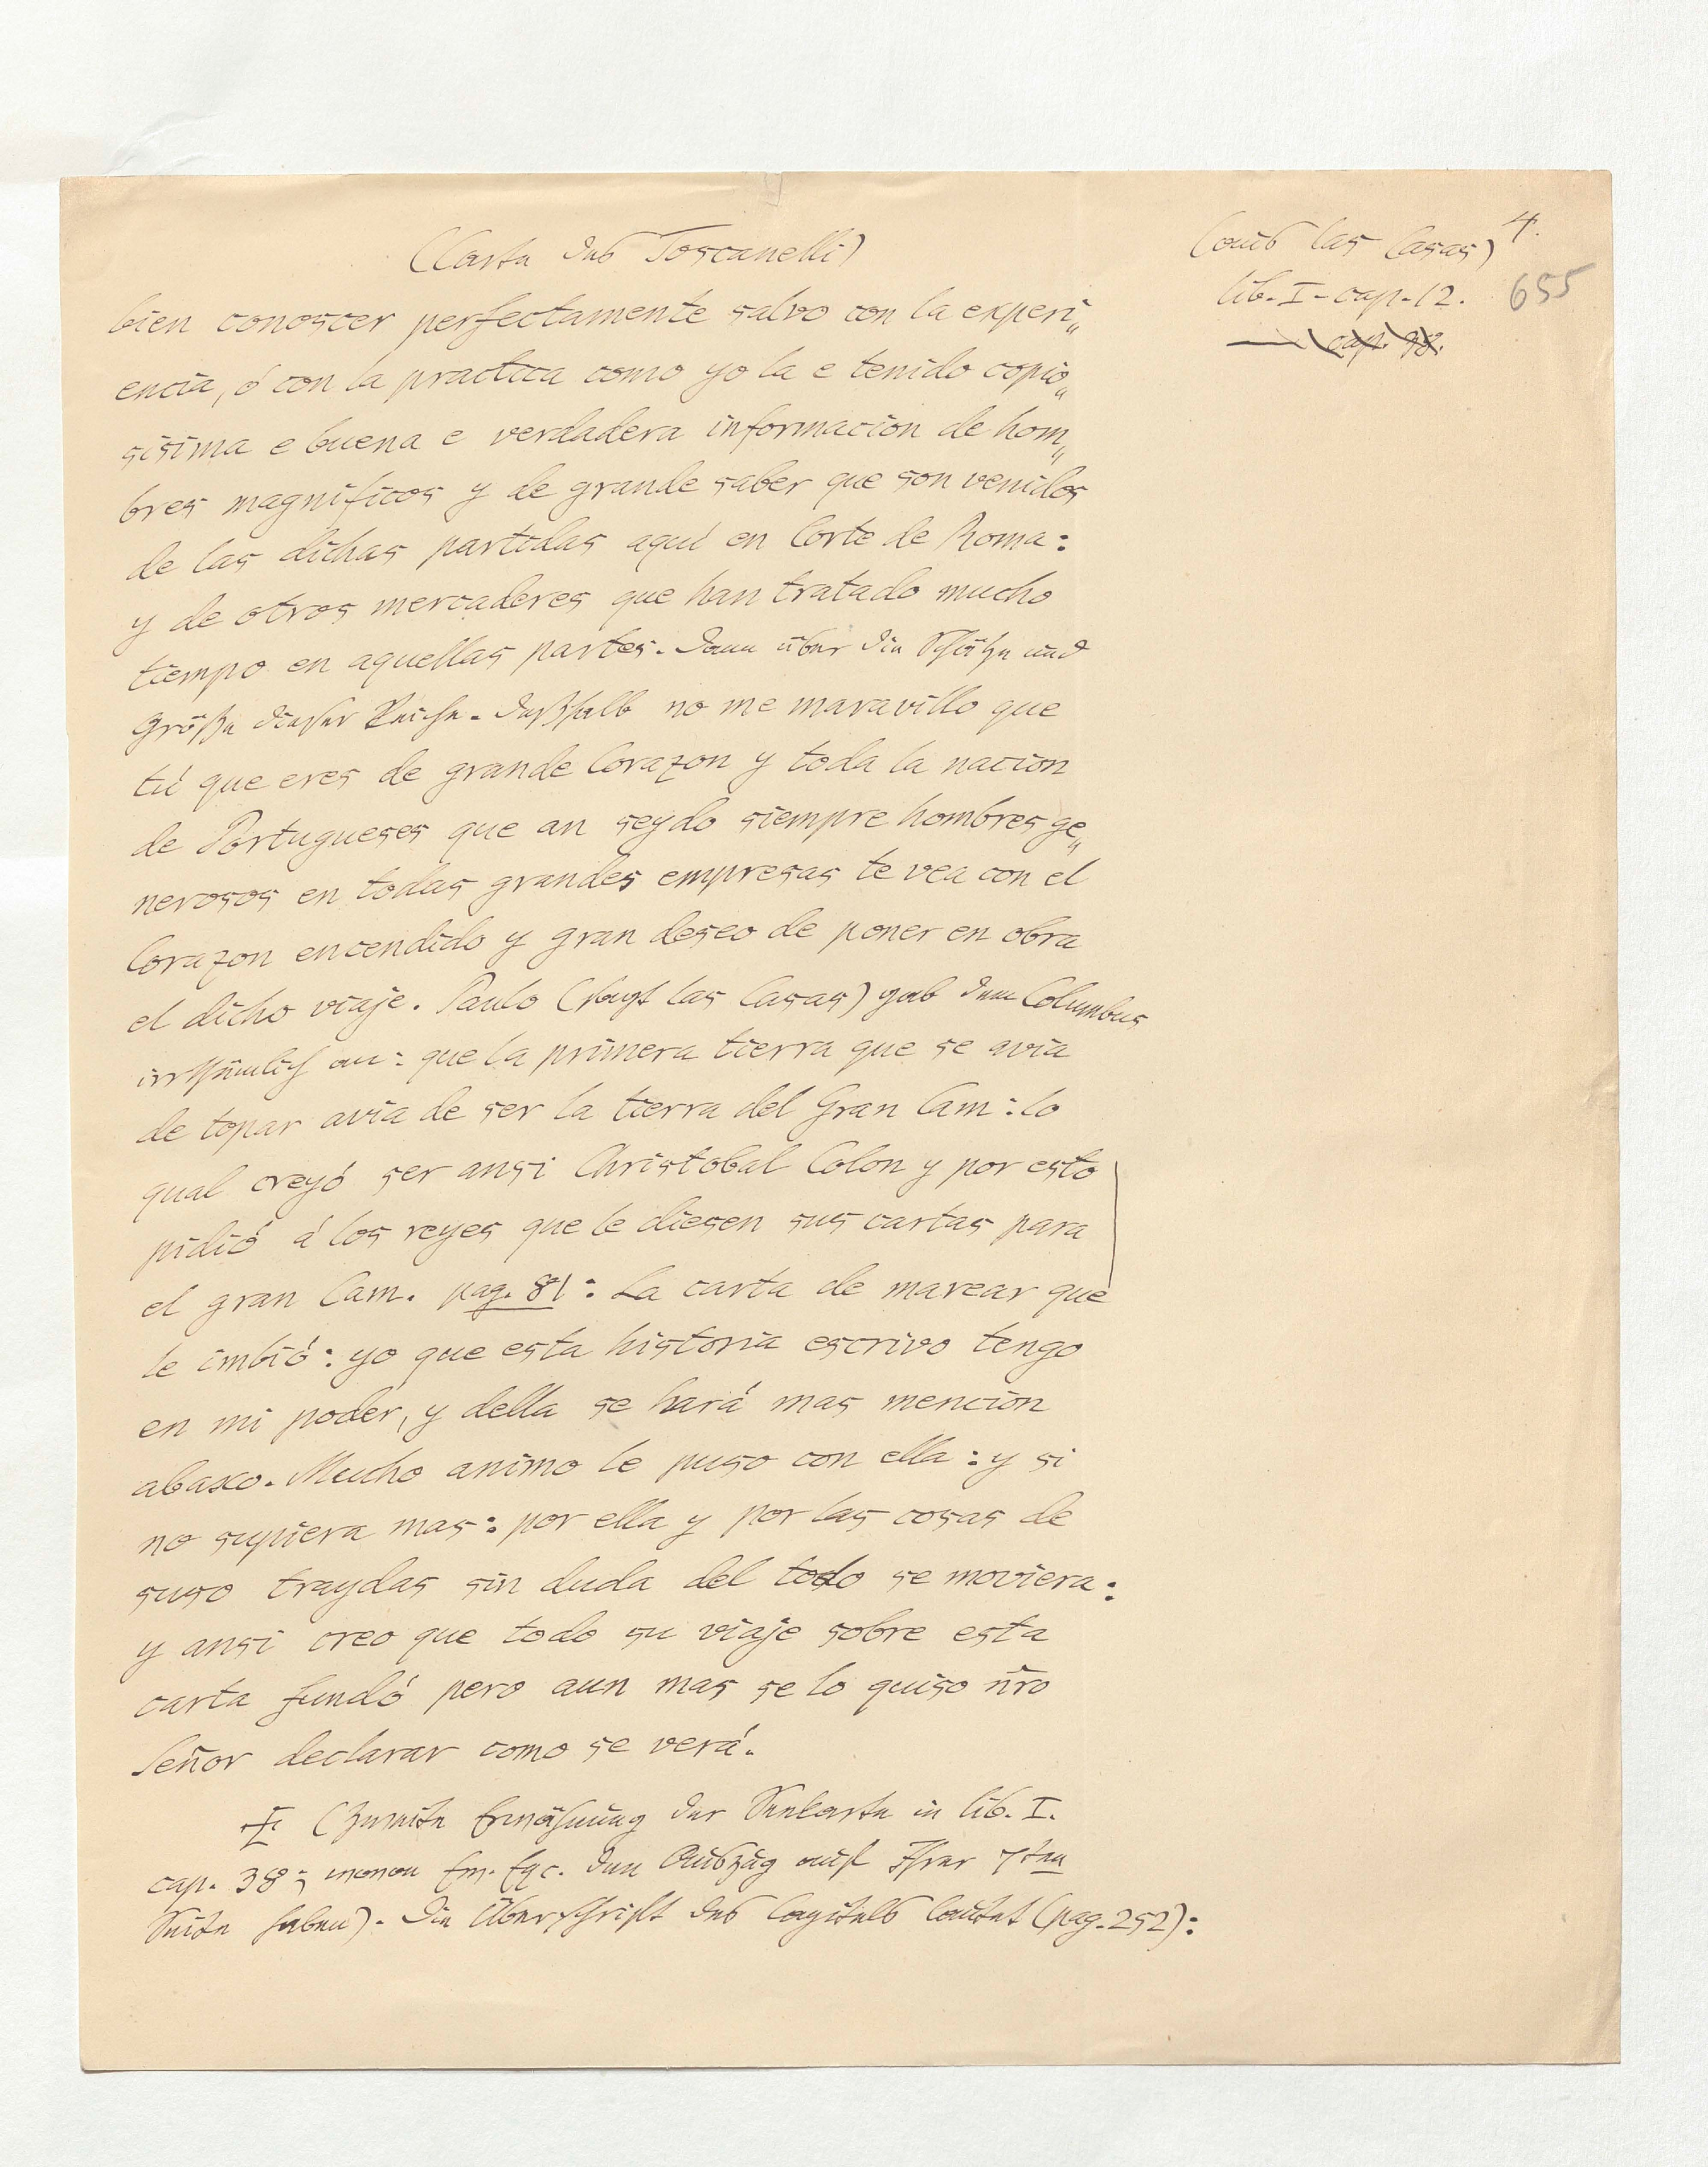 (Carta des Toscanelli)
(aus las Casas) 4.
lib. I - cap. 12.
— cap. 38.
655
bien conoscer perfectamente salvo con la experi„
encia, ó con la practica como yo la e tenido copio„
sisima e buena e verdadera informacion de hom„
bres magnificos y de grande saber que son venidos
de las dichas partidas aqui en Corte de Roma:
y de otros mercaderes que han tratado mucho
tiempo en aquellas partes. Dann über die Schätze und
Größe dieser Reiche. Deßhalb no me maravillo que
tú que eres de grande Corazon y toda la nacion
de Portugueses que an seydo siempre hombres ge„
nerosos en todas grandes empresas te vea con el
Corazon encendido y gran deseo de poner en obra
el dicho viaje. Paulo (sagt las Casas) gab dem Columbus
irrthümlich an: que la primera tierra que se avia
de topar avia de ser la tierra del Gran Cam: lo
qual creyó ser ansi Christobal Colon y por esto
pidió á los reyes que le diesen sus cartas para
el gran Cam. pag. 81: La carta de marear que
le imbió: yo que esta historia escrivo tengo
en mi poder, y della se hará mas mencion
abaxo. Mucho animo le puso con ella: y si
no supiera mas: por ella y por las cosas de
suso traydas sin duda del todo se moviera:
y ansi creo que todo su viaje sobre esta
carta fundó pero aun mas se lo quiso nr̃o
Señor declarar como se verá.
(Zweite Erwähnung der Seekarte in lib. I.
cap. 38; wovon Ew. Exc. den Auszug auf Ihrer 7ten
Seite haben). Die Überschrift des Capitels lautet (pag. 252):